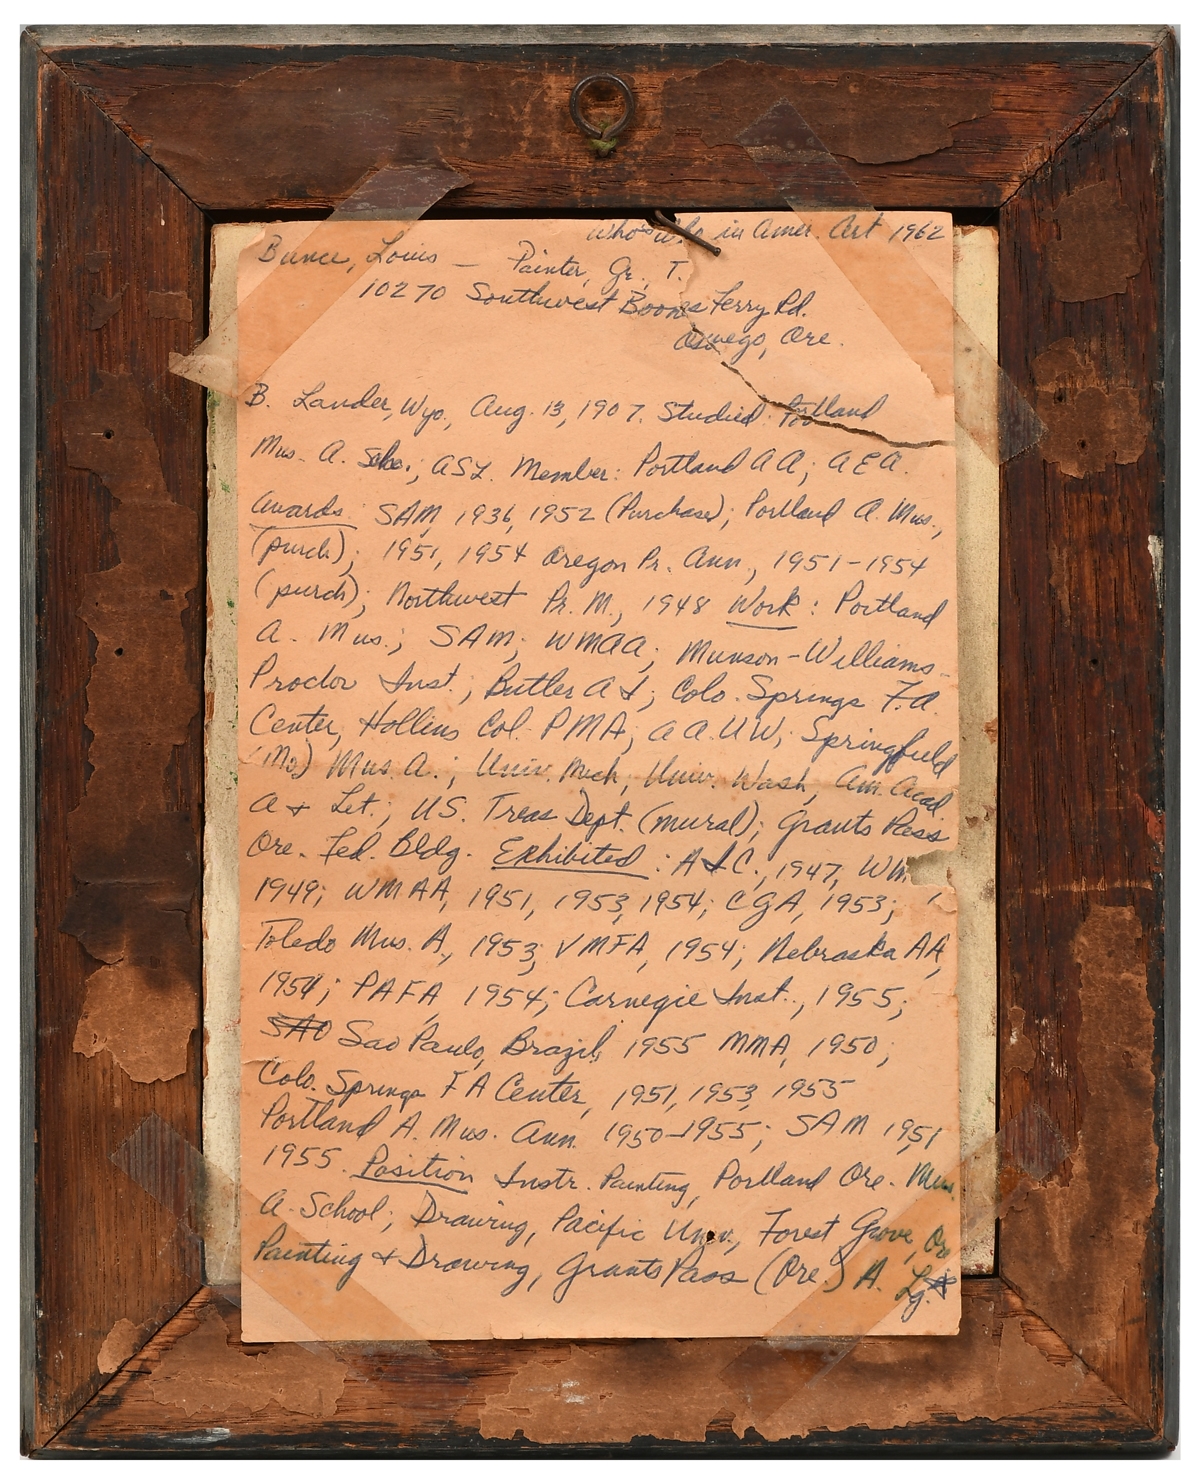 Who's Who in Amer. Art 1962
Bunce, Louis — Painter, Gr. T.
10270 Southwest Boones Ferry Rd.
Oswego, Ore.
B. Lander, Wyo., Aug. 13, 1907. Studied: Portland
Mus. A. Sch.; ASL. Member: Portland AA; AEA.
Awards: SAM, 1936, 1952 (Purchase); Portland A. Mus.,
(purch); 1951, 1954 Oregon Pr. Ann., 1951-1954
(purch); Northwest Pr. M., 1948 Work: Portland
A. Mus.; SAM; WMAA; Munson-Williams-
Proctor Inst.; Butler AI; Colo. Springs F.A.
Center, Hollins Col. PMA; AAUW; Springfield
(Mo) Mus. A.; Univ. Mich, Univ. Wash, Am. Acad.
A & Let.; US. Treas Dept. (mural); Grants Pass
Ore. Fed. Bldg. Exhibited: AIC., 1947,
1949; WMAA, 1951, 1953, 1954; CGA, 1953;
Toledo Mus. A., 1953; VMFA, 1954; Nebraska AA,
1954; PAFA, 1954; Carnegie Inst., 1955;
SAO Sao Paulo, Brazil, 1955 MMA, 1950;
Colo. Springs FA Center, 1951, 1953, 1955
Portland A. Mus. Ann. 1950-1955; SAM 1951
1955. Position Instr. Painting, Portland Ore. Mus.
A. School; Drawing, Pacific Univ., Forest Grove, Ore
Painting & Drawing, Grants Pass (Ore.) A. Lg.